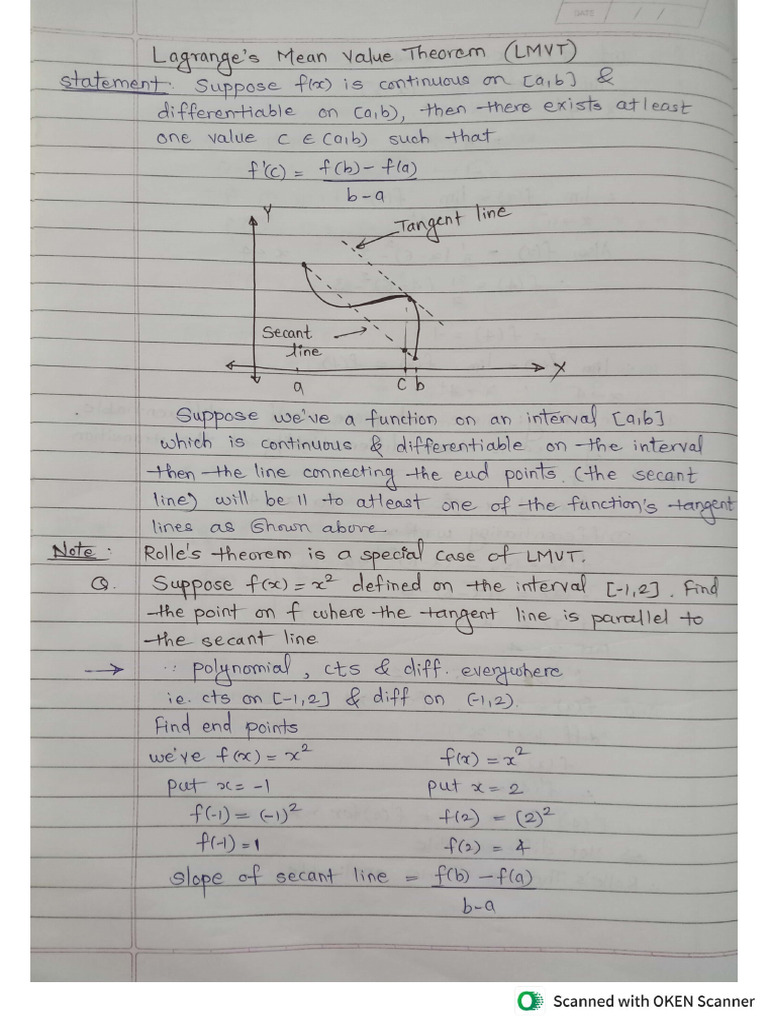 DATE / /
Lagrange's Mean Value Theorem (LMVT)
Statement: Suppose f(x) is continuous on [a,b] &
differentiable on (a,b), then there exists atleast
one value c ∈ (a,b) such that
f'(c) = f(b) - f(a)
b-a
Y
Tangent line
Secant
line
X
a
c b
Suppose we've a function on an interval [a,b]
which is continuous & differentiable on the interval
then the line connecting the end points. (the secant
line) will be || to atleast one of the function's tangent
lines as shown above
Note: Rolle's theorem is a special case of LMVT.
Q. Suppose f(x) = x² defined on the interval [-1,2]. Find
the point on f where the tangent line is parallel to
the secant line
→ ∵ polynomial, cts & diff. everywhere
ie. cts on [-1,2] & diff on (-1,2).
Find end points
we've f(x) = x² f(x) = x²
put x = -1 put x = 2
f(-1) = (-1)² f(2) = (2)²
f(-1) = 1 f(2) = 4
Slope of secant line = f(b) - f(a)
b-a
Scanned with OKEN Scanner